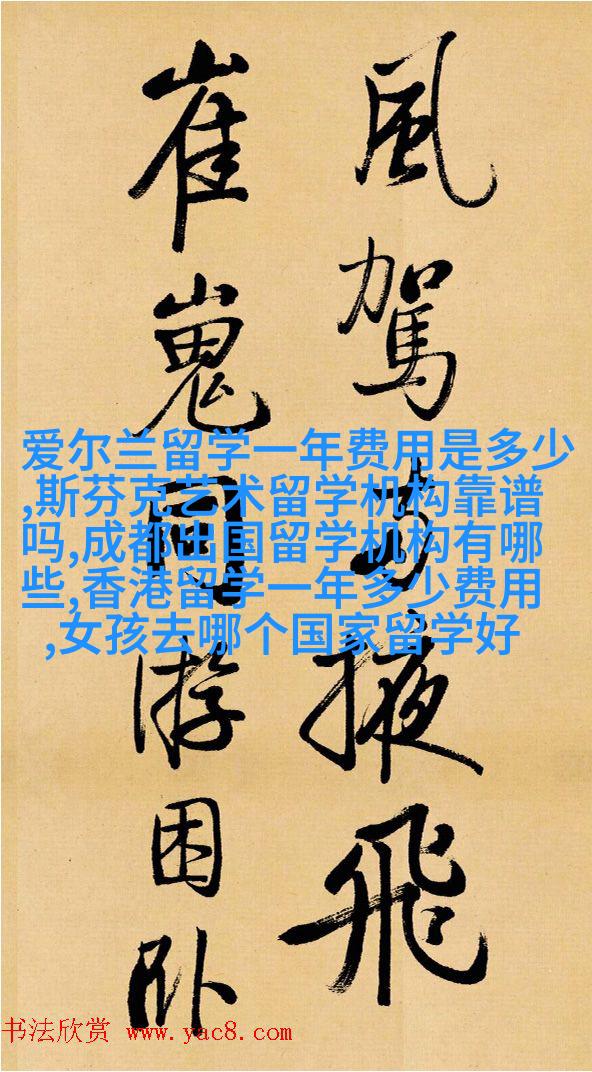 風駕掖飛
崔嵬同游困卧
爱尔兰留学一年费用是多少
,斯芬克艺术留学机构靠谱
吗,成都出国留学机构有哪
些,香港留学一年多少费用
,女孩去哪个国家留学好
书法欣赏 www.yac8.com